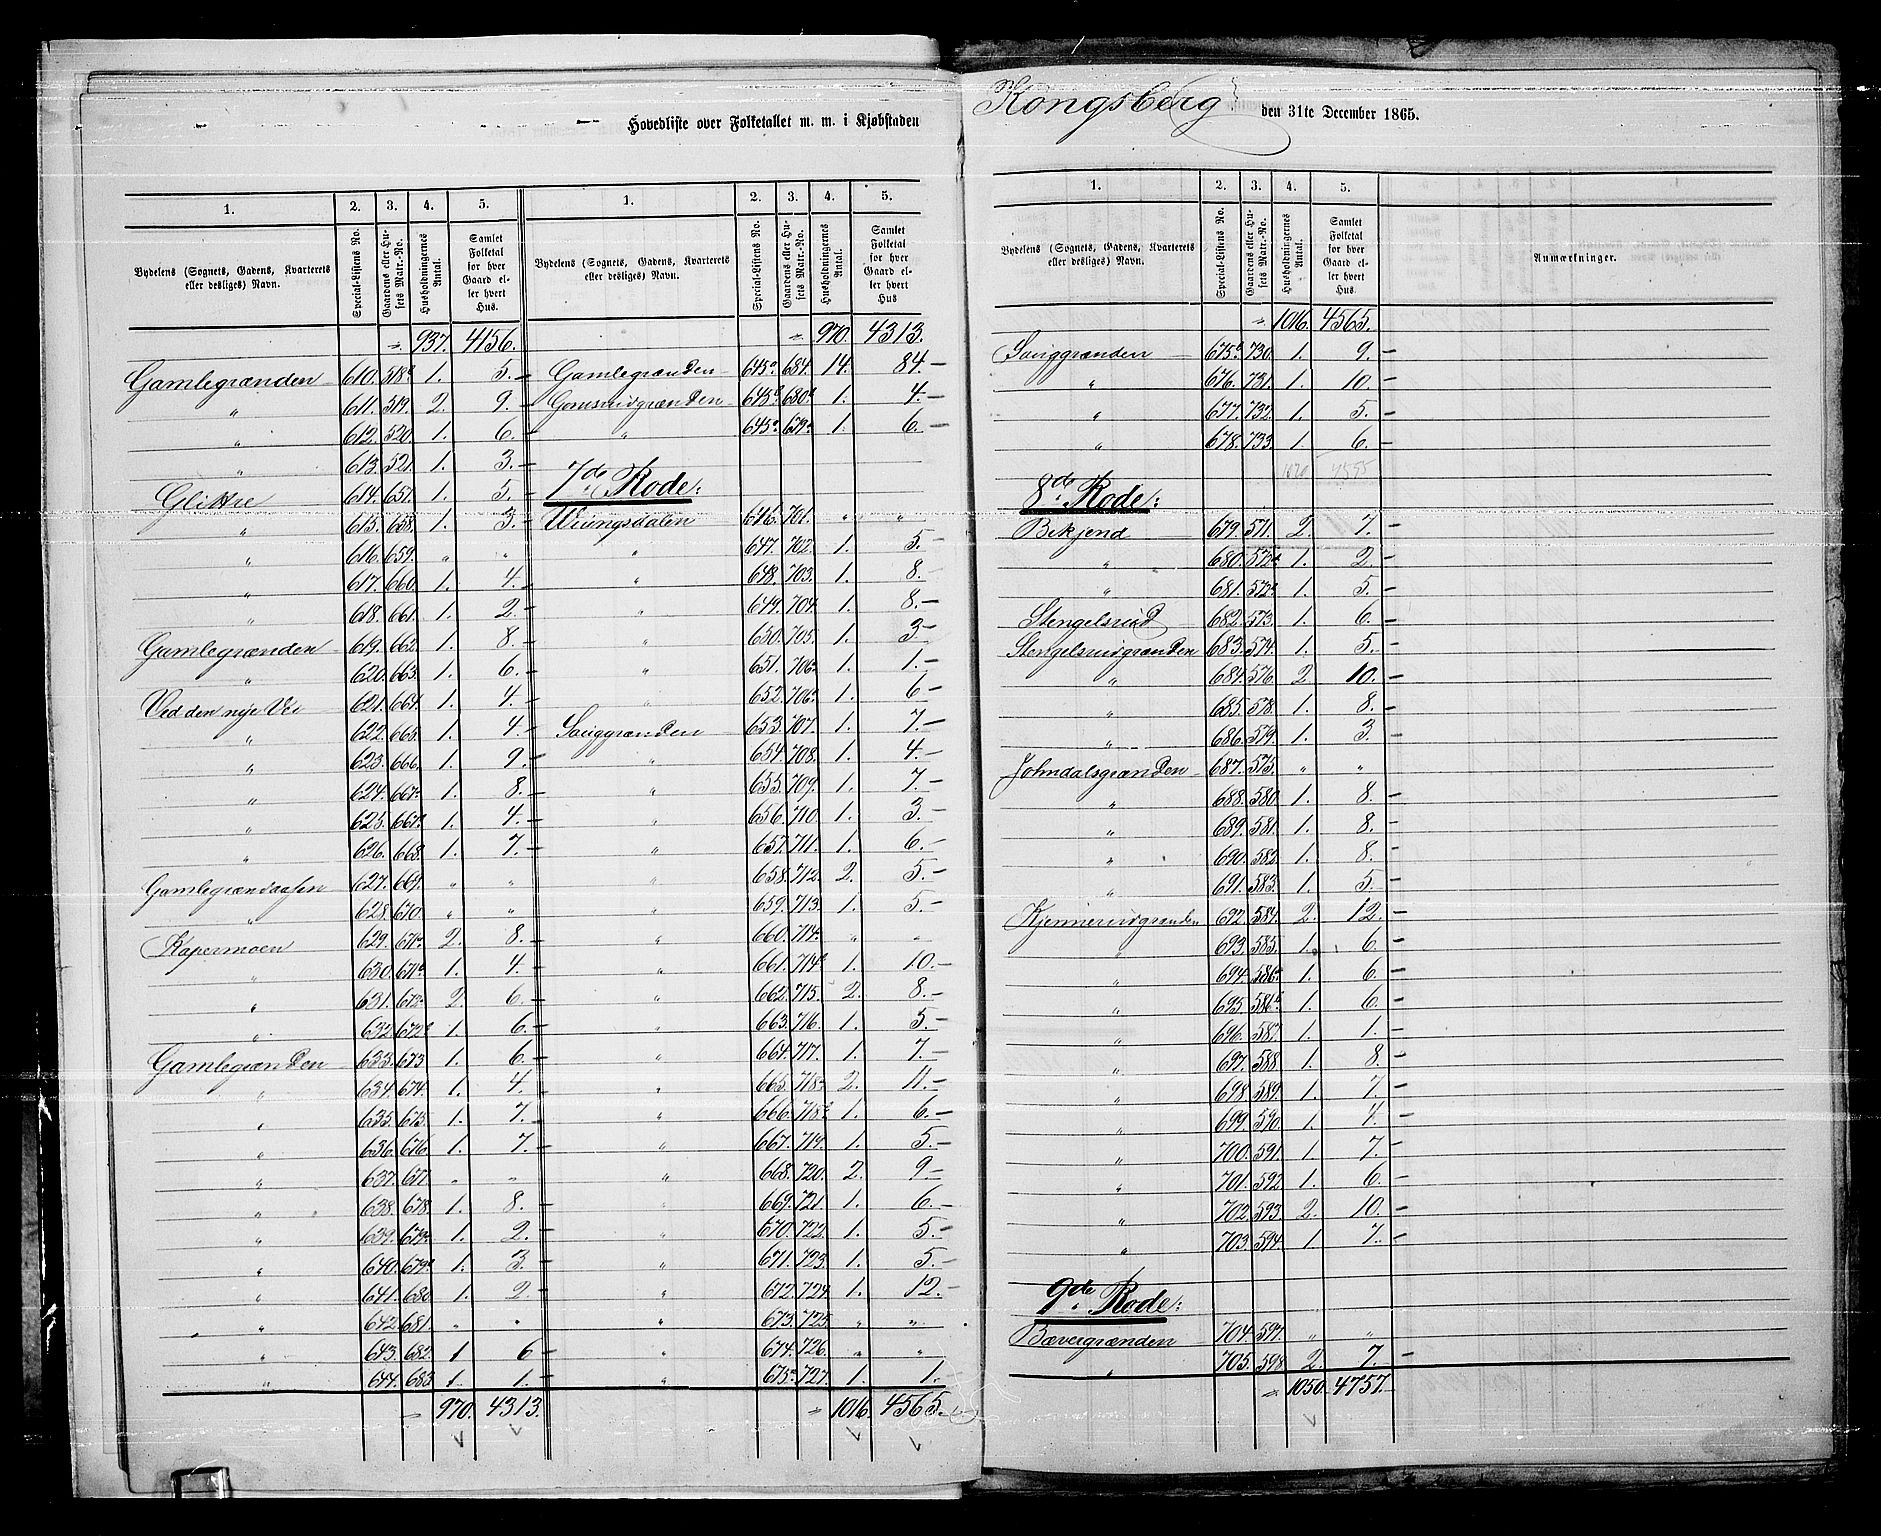 Hovedliste over Folketallet m. m. i Kjøbstaden Kongsberg den 31te December 1865.
1. 2. 3. 4. 5. 1. 2. 3. 4. 5.
Bydelens (Sognets, Gadens, Kvarterets eller desliges) Navn. Special-Listens No. Gaardens eller Husets Matr.-No. Husholdningernes Antal. Samlet Folketal for hver Gaard eller hvert Hus.
Bydelens (Sognets, Gadens, Kvarterets eller desliges) Navn. Special-Listens No. Gaardens eller Husets Matr.-No. Husholdningernes Antal. Samlet Folketal for hver Gaard eller hvert Hus
" 937. 4156.
Gamlegrænden 610. 518b 1. 5. –
" 611. 519. 2. 9. –
" 612. 520. 1. 6. –
" 613. 521. 1. 3. –
Glittre 614. 657. 1. 5. –
" 615. 658. 1. 3. –
" 616. 659. " "
" 617. 660. 1. 4. –
" 618. 661. 1. 2. –
Gamlegrænden 619. 662. 1. 8. –
" 620. 663. 1. 6. –
Ved den nye Vei 621. 664. 1. 4. –
" 622. 665. 1. 4. –
" 623. 666. 1. 9. –
" 624. 667a 1. 8. –
" 625. 667b 1. 4. –
" 626. 668. 1. 7. –
Gamlegrændaasen 627. 669. " "
" 628. 670. " "
Kapermoen 629. 671a 2. 8. –
" 630. 671b 1. 4. –
" 631. 672a 2. 6. –
" 632. 672b 1. 6. –
Gamlegrænden 633. 673 1. 6. –
" 634. 674. 1. 4. –
" 635. 675. 1. 7. –
" 636. 676 1. 7. –
" 637. 677. " "
" 638. 678. 1. 8. –
" 639. 679a 1. 2. –
" 640. 679b 1. 3. –
" 641. 680 1. 2. –
" 642. 681. " "
" 643. 682. 1 6 –
" 644. 683. 1. 1. –
" 970. 4313.
" 970. 4313.
Gamlegrænden 645a 684. 14. 84. –
Gomsrudgrænden 645b 680b 1. 4. –
" 645c 659a 1. 6. –
7de Rode:
Wungsdalen 646. 701. " "
" 647. 702. 1. 5. –
" 648. 703. 1. 8. –
" 649. 704. 1. 8. –
" 650. 705. 1. 3. –
" 651. 706a 1. 1. –
" 652. 706b 1. 6 –
Sauggrænden 653. 707. 1. 7. –
" 654. 708. 1. 4. –
" 655. 709. 1. 7. –
" 656. 710. 1. 3. –
" 657. 711. 1. 6. –
" 658. 712. 2. 5. –
" 659. 713. 1. 5. –
" 660. 714a " "
" 661. 714b 1. 10. –
" 662. 715. 2. 8. –
" 663. 716. 1. 5. –
" 664. 717. 1. 7. –
" 665. 718a 2. 11. –
" 666. 718b 1. 6. –
" 667. 719. 1. 5. –
" 668. 720. 2. 9. –
" 669. 721. 1. 6. –
" 670. 722. 1. 5. –
" 671. 723. 1. 5. –
" 672. 724. 1. 12. –
" 673. 725. " "
" 674. 726. " "
" 675a 727. 1. 1.
" 1016. 4565.
1. 2. 3. 4. 5.
Bydelens (Sognets, Gadens, Kvarterets eller desliges) Navn. Special-Listens No. Gaardens eller Husets Matr.-No. Husholdningernes Antal. Samlet Folketal for hver Gaard eller hvert Hus. Anmærkninger.
" 1016. 4565.
Sauggrænden 675b 730. 1. 9. –
" 676. 731. 1. 10. –
" 677. 732. 1. 5. –
" 678. 733. 1. 6. –
1020 4595
8de Rode:
Bekjend 679. 571. 2. 7. –
" 680. 572a 1. 2. –
" 681. 572b 1. 5. –
Stengelsrud 682. 573. 1. 6. –
Stengelsrudgrænden 683. 574. 1. 5. –
" 684. 576. 2 10. –
" 685. 578. 1. 8. –
" 686. 579. 1. 3. –
Johndalsgrænden 687. 575. " "
" 688. 580. 1. 8. –
" 689. 581. 1. 8. –
" 690. 582. 1. 8. –
" 691. 583. 1. 5. –
Kjennerudgrænden 692. 584. 2. 12. –
" 693. 585. 1. 6. –
" 694. 586a 1. 6. –
" 695. 586b 1. 6. –
" 696. 587. 1. 1. –
" 697. 588 1. 8. –
" 698. 589. 1. 7. –
" 699. 590. 1. 4. –
" 700. 591. 1 7. –
" 701. 592 1. 6. –
" 702. 593. 2. 10. –
" 703. 594. 1 7. –
9de Rode:
Bævergrænden 704. 597. " "
" 705. 598. 2. 7. –
" 1050. 4757.